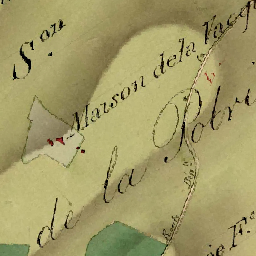 Son
Maison de la Vacq
de la Potri
ée F.e